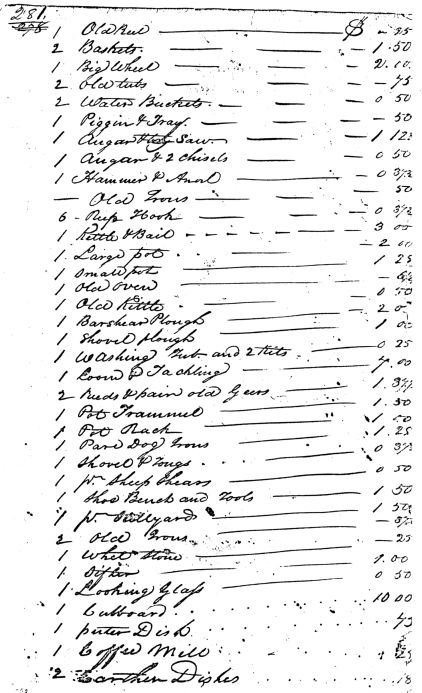 281.
278
1 Old Reel $ - 25
2 Baskets. 1.50
1 Big Wheel 2.00
2 Old tubs - 75
2 Water Buckets. 0 50
1 Piggin & Tray. - 50
1 Augar Saw. 1 12½
1 Augar & 2 Chisels - 0 50
1 Hammer & Anvl - 0 37½
— Old Irons 50
6 - Reap Hook 0 37½
1 Kettle & Bail 3 00
1 Large pot. - 2 00
1 Small pot 1 25
1 Old oven
1 Old Kettle 0 50
1 Barshear Plough 2 0
1 Shovel plough 1 00
1 Washing Tub and 2 Kits 0 25
1 Loom & Tackling 7.00
2 Reeds & pair old Gears 1.37½
1 Pot Trammel 1.50
1 Pot Rack 1 50
1 Pare Dog Irons 1.25
1 Shovel & Tongs 0 37½
1 pr. Sheep Shears 0 50
1 Shoe Bench and Tools 1 50
1 pr. Stillyards 1 50
2 Old Irons - 37½
1 Whet Stone - 25
1 Sifter 1.00
1 Looking Glass 0 50
1 Cubboard 10 00
1 puter Dish 75
1 Coffee Mill 25
2 Earthen Dishes 18